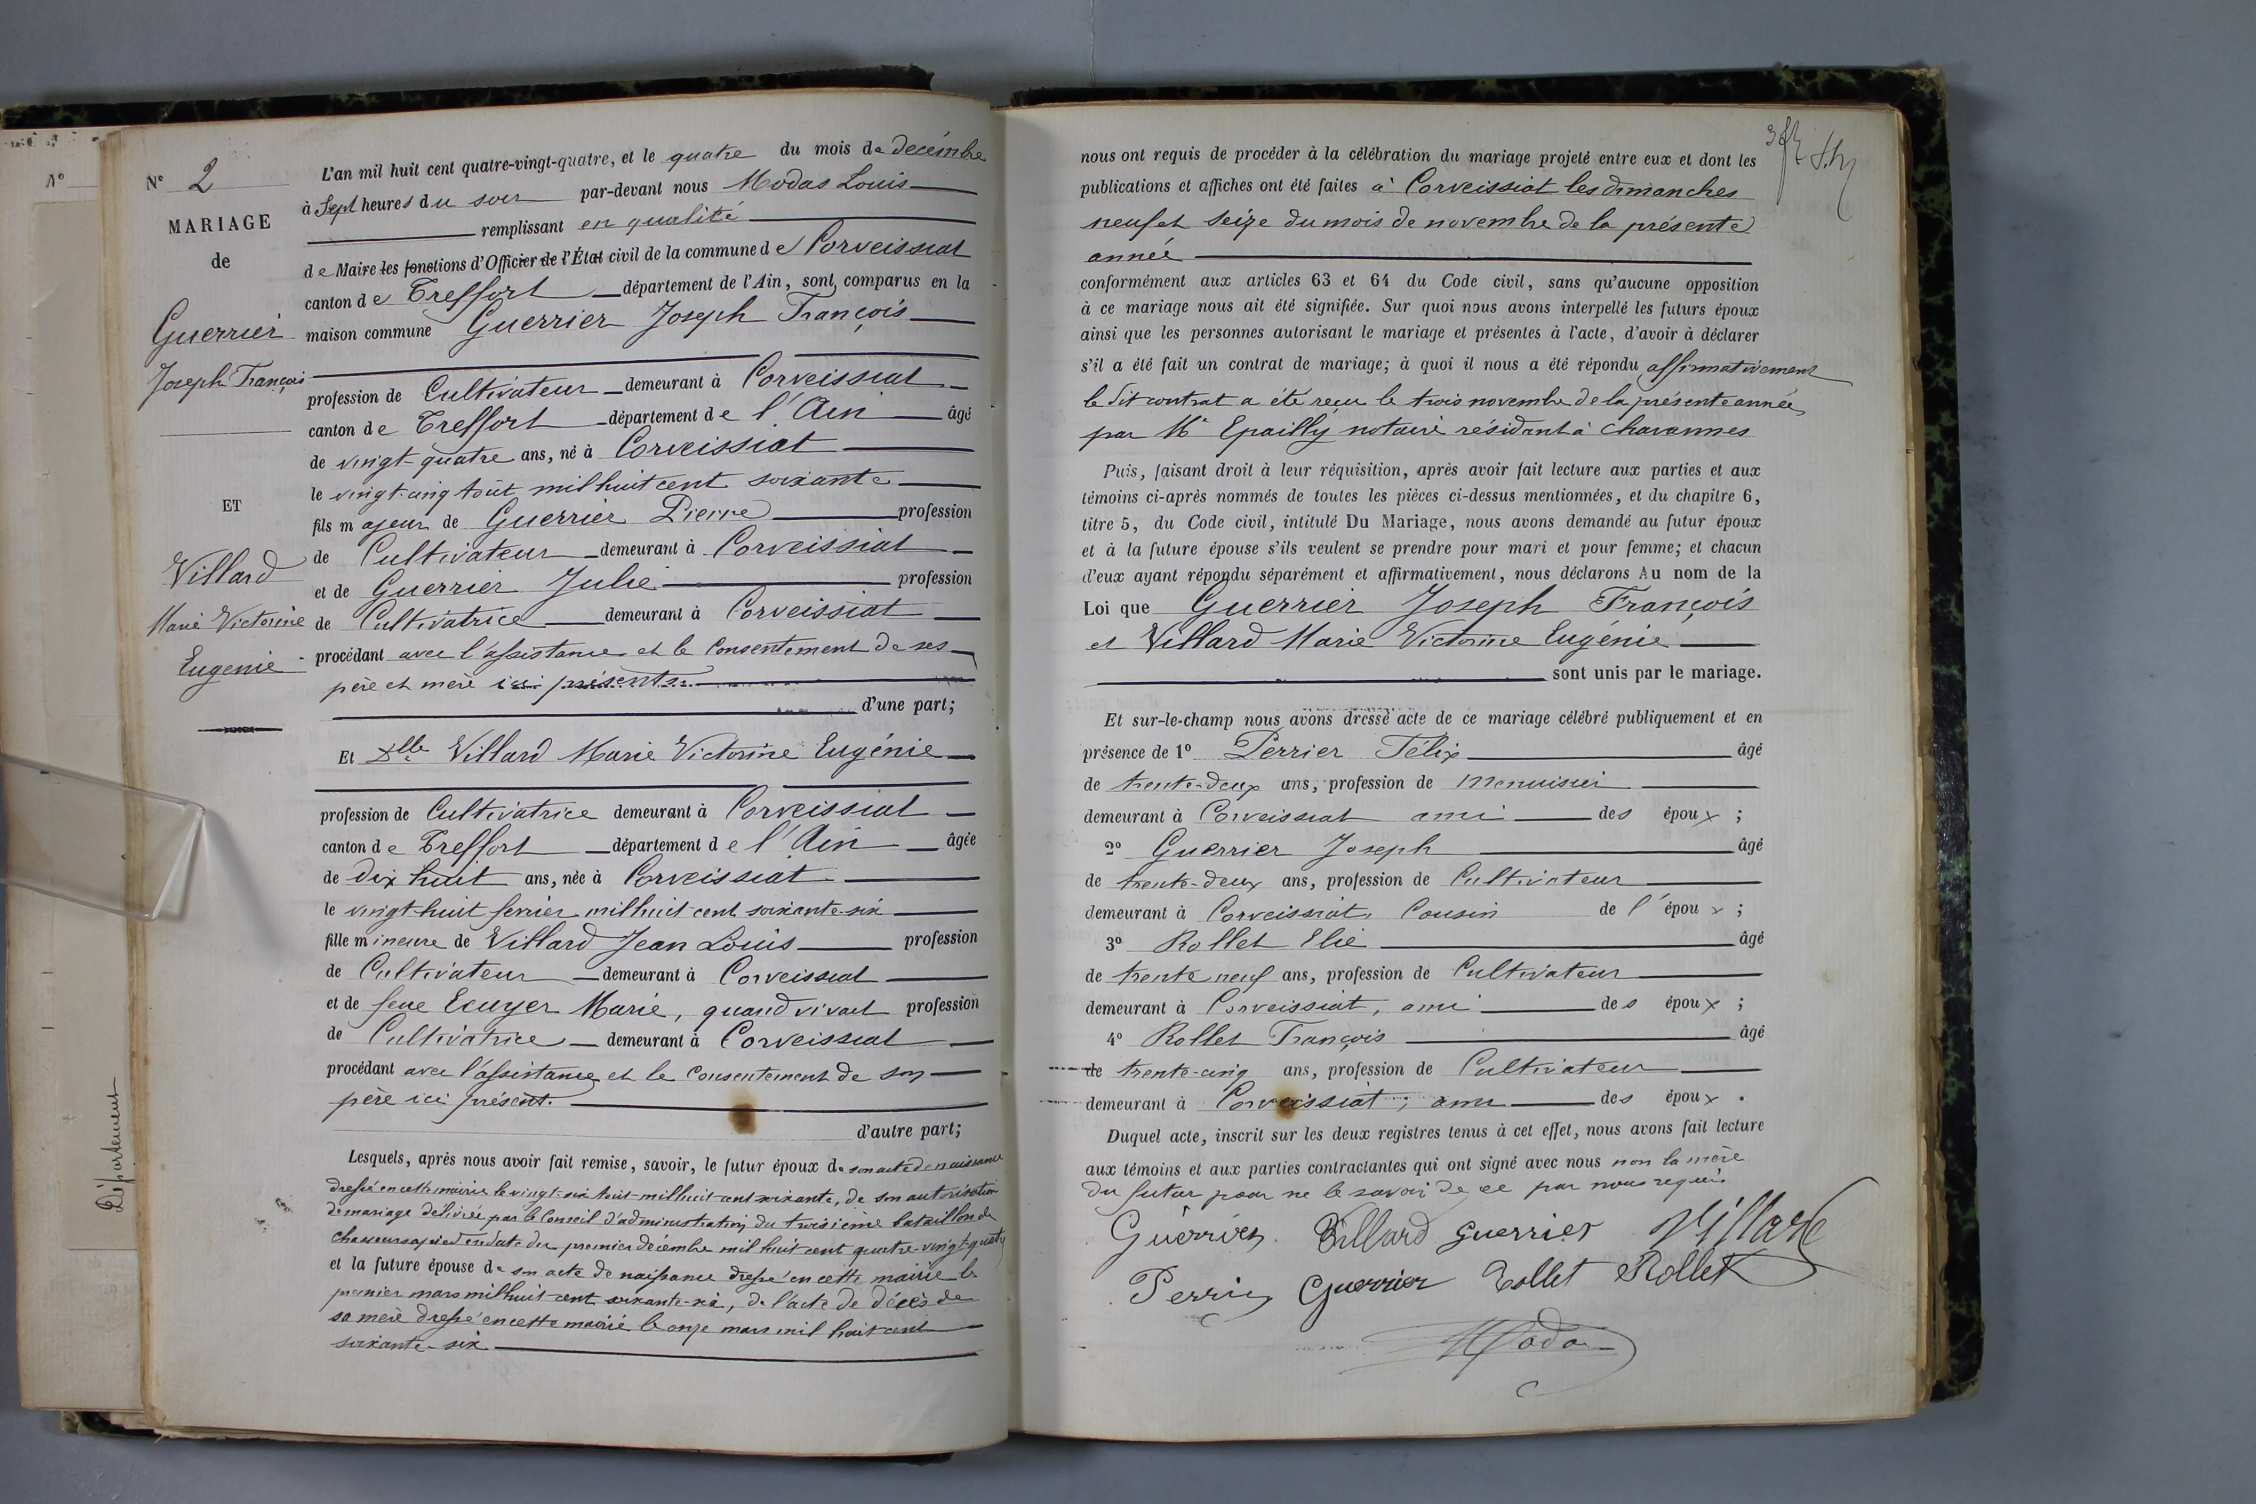 N° 2
MARIAGE
de
Guerrier
Joseph François
ET
Villard
Marie Victorine
Eugenie
L'an mil huit cent quatre-vingt-quatre, et le quatre du mois de decémbre
à Sept heures du soir par-devant nous Modas Louis
remplissant en qualité
de Maire les fonctions d'Officier de l'État civil de la commune de Corveissiat
canton de Treffort département de l'Ain, sont comparus en la
maison commune Guerrier Joseph François
profession de Cultivateur demeurant à Corveissiat
canton de Treffort département de l'Ain âgé
de vingt-quatre ans, né à Corveissiat
le vingt-cinq août mil huit cent soixante
fils majeur de Guerrier Pierre profession
de Cultivateur demeurant à Corveissiat
et de Guerrier Julie profession
de Cultivatrice demeurant à Corveissiat
procédant avec l'assistance et le Consentement de ses
père et mère ici présents
d'une part;
Et Dlle Villard Marie Victorine Eugénie
profession de Cultivatrice demeurant à Corveissiat
canton de Treffort département de l'Ain âgée
de dix huit ans, née à Corveissiat
le vingt-huit fevrier mil huit cent soixante-six
fille mineure de Villard Jean Louis profession
de Cultivateur demeurant à Corveissiat
et de feue Ecuyer Marie, quand vivait profession
de Cultivatrice demeurant à Corveissiat
procédant avec l'assistance et le Consentement de son
père ici présent.
d'autre part;
Lesquels, après nous avoir fait remise, savoir, le futur époux de son acte de naissance
dressé en cette mairie le vingt-six août mil huit cent soixante, de son autorisation
de mariage délivrée par le Conseil d'administration du troisième bataillon de
chasseurs à pied en date du premier décembre mil huit cent quatre-vingt-quatre
et la future épouse de son acte de naissance dressé en cette mairie le
premier mars mil huit cent soixante-six, de l'acte de décès de
sa mère dressé en cette mairie le onze mars mil huit cent
soixante-six
Département
nous ont requis de procéder à la célébration du mariage projeté entre eux et dont les
publications et affiches ont été faites à Corveissiat les dimanches
neuf et seize du mois de novembre de la présente
année
conformément aux articles 63 et 64 du Code civil, sans qu'aucune opposition
à ce mariage nous ait été signifiée. Sur quoi nous avons interpellé les futurs époux
ainsi que les personnes autorisant le mariage et présentes à l'acte, d'avoir à déclarer
s'il a été fait un contrat de mariage; à quoi il nous a été répondu affirmativement
le dit contrat a été reçu le trois novembre de la présente année
par Me Epailly notaire résidant à Chavannes
Puis, faisant droit à leur réquisition, après avoir fait lecture aux parties et aux
témoins ci-après nommés de toutes les pièces ci-dessus mentionnées, et du chapitre 6,
titre 5, du Code civil, intitulé Du Mariage, nous avons demandé au futur époux
et à la future épouse s'ils veulent se prendre pour mari et pour femme; et chacun
d'eux ayant répondu séparément et affirmativement, nous déclarons Au nom de la
Loi que Guerrier Joseph François
et Villard Marie Victorine Eugénie
sont unis par le mariage.
Et sur-le-champ nous avons dressé acte de ce mariage célébré publiquement et en
présence de 1° Perrier Félix âgé
de trente-deux ans, profession de Menuisier
demeurant à Corveissiat ami des époux;
2° Guerrier Joseph âgé
de trente-deux ans, profession de Cultivateur
demeurant à Corveissiat, Cousin de l'époux;
3° Rollet Elie âgé
de trente neuf ans, profession de Cultivateur
demeurant à Corveissiat, ami des époux;
4° Rollet François âgé
de trente-cinq ans, profession de Cultivateur
demeurant à Corveissiat, ami des époux.
Duquel acte, inscrit sur les deux registres tenus à cet effet, nous avons fait lecture
aux témoins et aux parties contractantes qui ont signé avec nous non la mère
du futur pour ne le savoir de ce par nous requise
Guerrier Villard Guerrier Villard
Perrier Guerrier Rollet Rollet
Modas